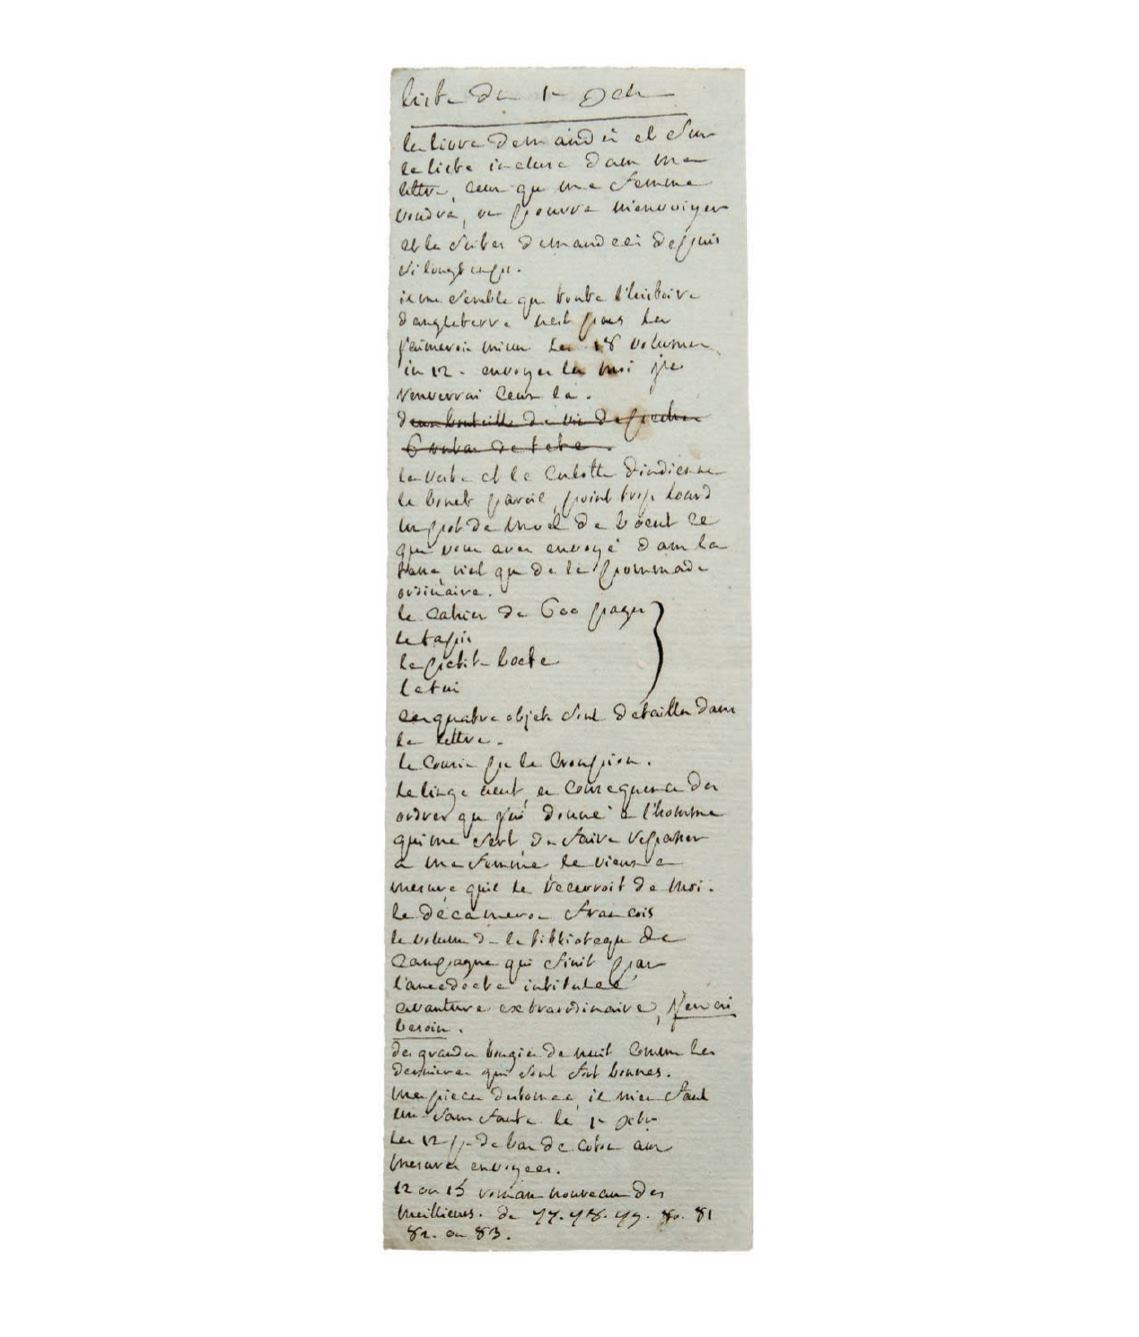 liste du 1er Octobre
les livres demandés et sur
la liste incluse dans ma
lettre, ceux que ma femme
voudra, ou pourra m'envoiyer
et les demandées depuis
si longtemps.
il me semble que toute l'histoire
d'angleterre nest pas la
j'aimerois mieux les 18 volumes
in 12 - envoyez les moi je
renverrai ceux la.
d'eau bouteille de vin de
6 de tete.
la veste et la culotte d'indienne
le bonet pareil, point trop lourd
un pot de moël de boeuf ce
que vous avez envoyé dans la
tasse nest que de la pommade
ordinaire.
le cahier de 600 pages
le tapis
la petite boete
letui
ces quatre objets sont détaillés dans
la lettre.
le cousin pr le croupion.
le linge neuf, en consequence des
ordres que j'ai donné a l'homme
qui me sert de faire repasser
a ma femme le vieux a
mesure quil le recevroit de moi.
le décameron francois
le volume de la biblioteque de
campagne qui finit par
l'anecdote intitulée
avanture extraordinaire, jen ai
besoin.
des grandes bougies de nuit comme les
dernieres qui sont fort bonnes.
ma piece destomac, il men faut
une sans faute le 1er octbre
les 12 p. de bas de coton aux
mesures envoyées.
12 ou 15 romans nouveaux des
meillieurs. de 77. 78. 79. 80. 81
82. ou 83.